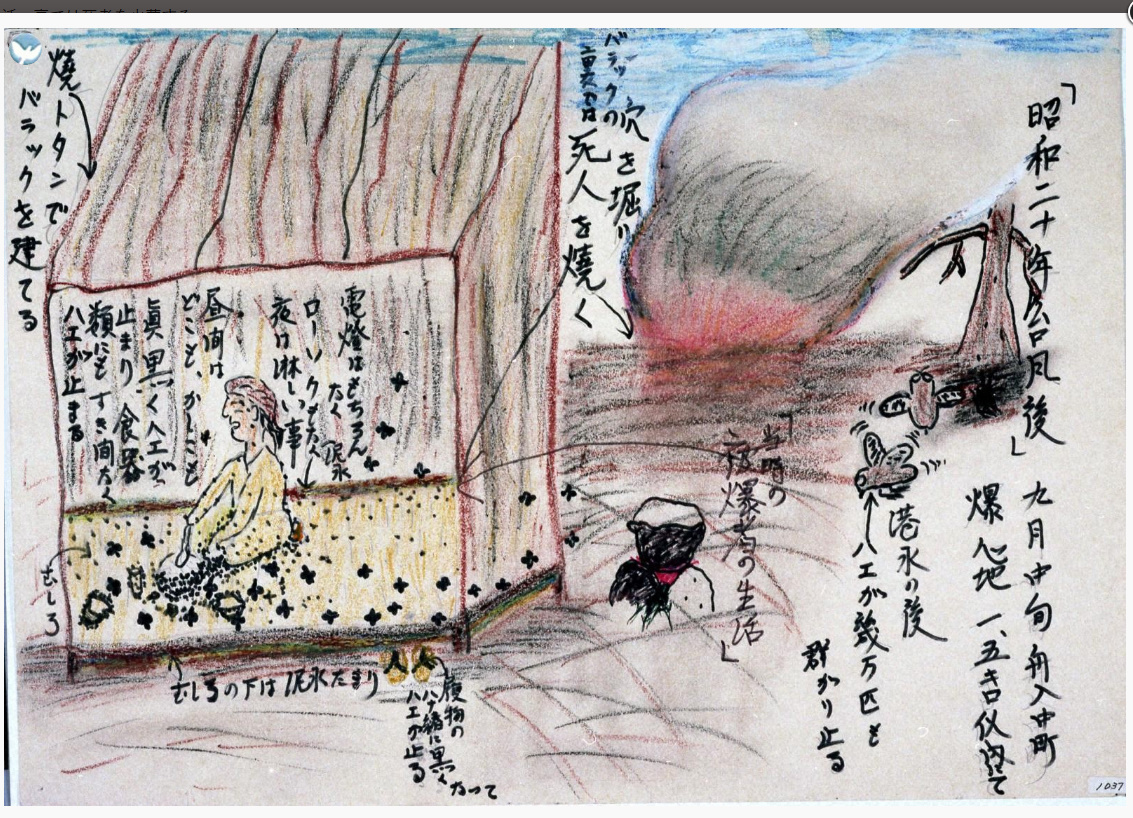 「昭和二十年台風後」
九月中旬 舟入中町
爆心地 一、五キロ
港水の後
ハエが幾万匹も
群がり止る
「当時の
被爆者の生活」
バラックの
穴を掘り
死人を燒く
電燈はもちろん
なく
泥水
ローソクもなく
夜は淋しい事
昼間は
どこも、かしこも
眞黒くハエが
止まり 食器
類にもすき間なく
ハエが止まる
燒トタンで
バラックを建てる
むしろ
むしろの下は泥水たまり
履物の
ハナ緒に黒く
なって
ハエが止る
1037